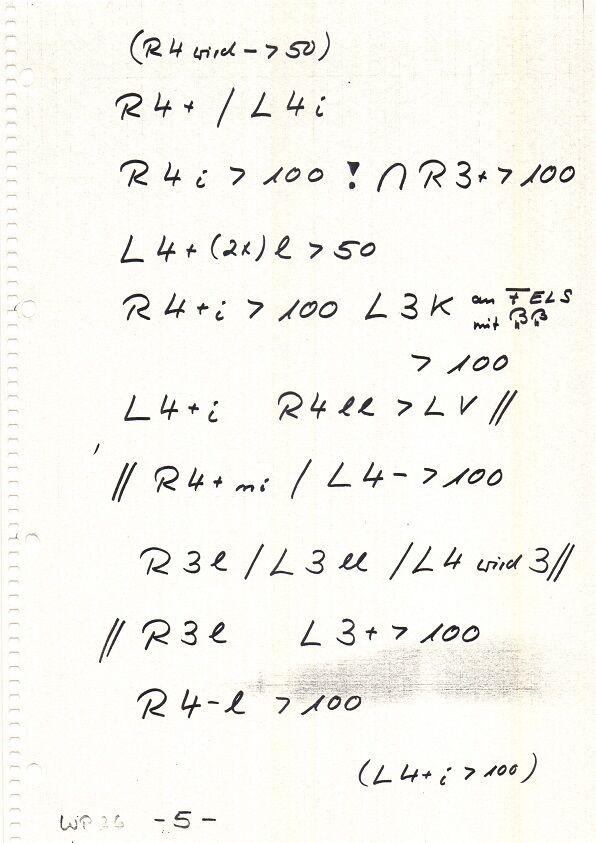 (R4 wird -> 50)
R4+ / L4i
R4i > 100 ! ∩ R3+ > 100
L4+ (2x) l > 50
R4+i > 100 L3K an FELS
mit „B„B
> 100
L4+i R4ll > LV //
// R4+ mi / L4- > 100
R3l / L3ll / L4 wird 3//
// R3l L3+ > 100
R4-l > 100
(L4+i > 100)
WP 26 -5-